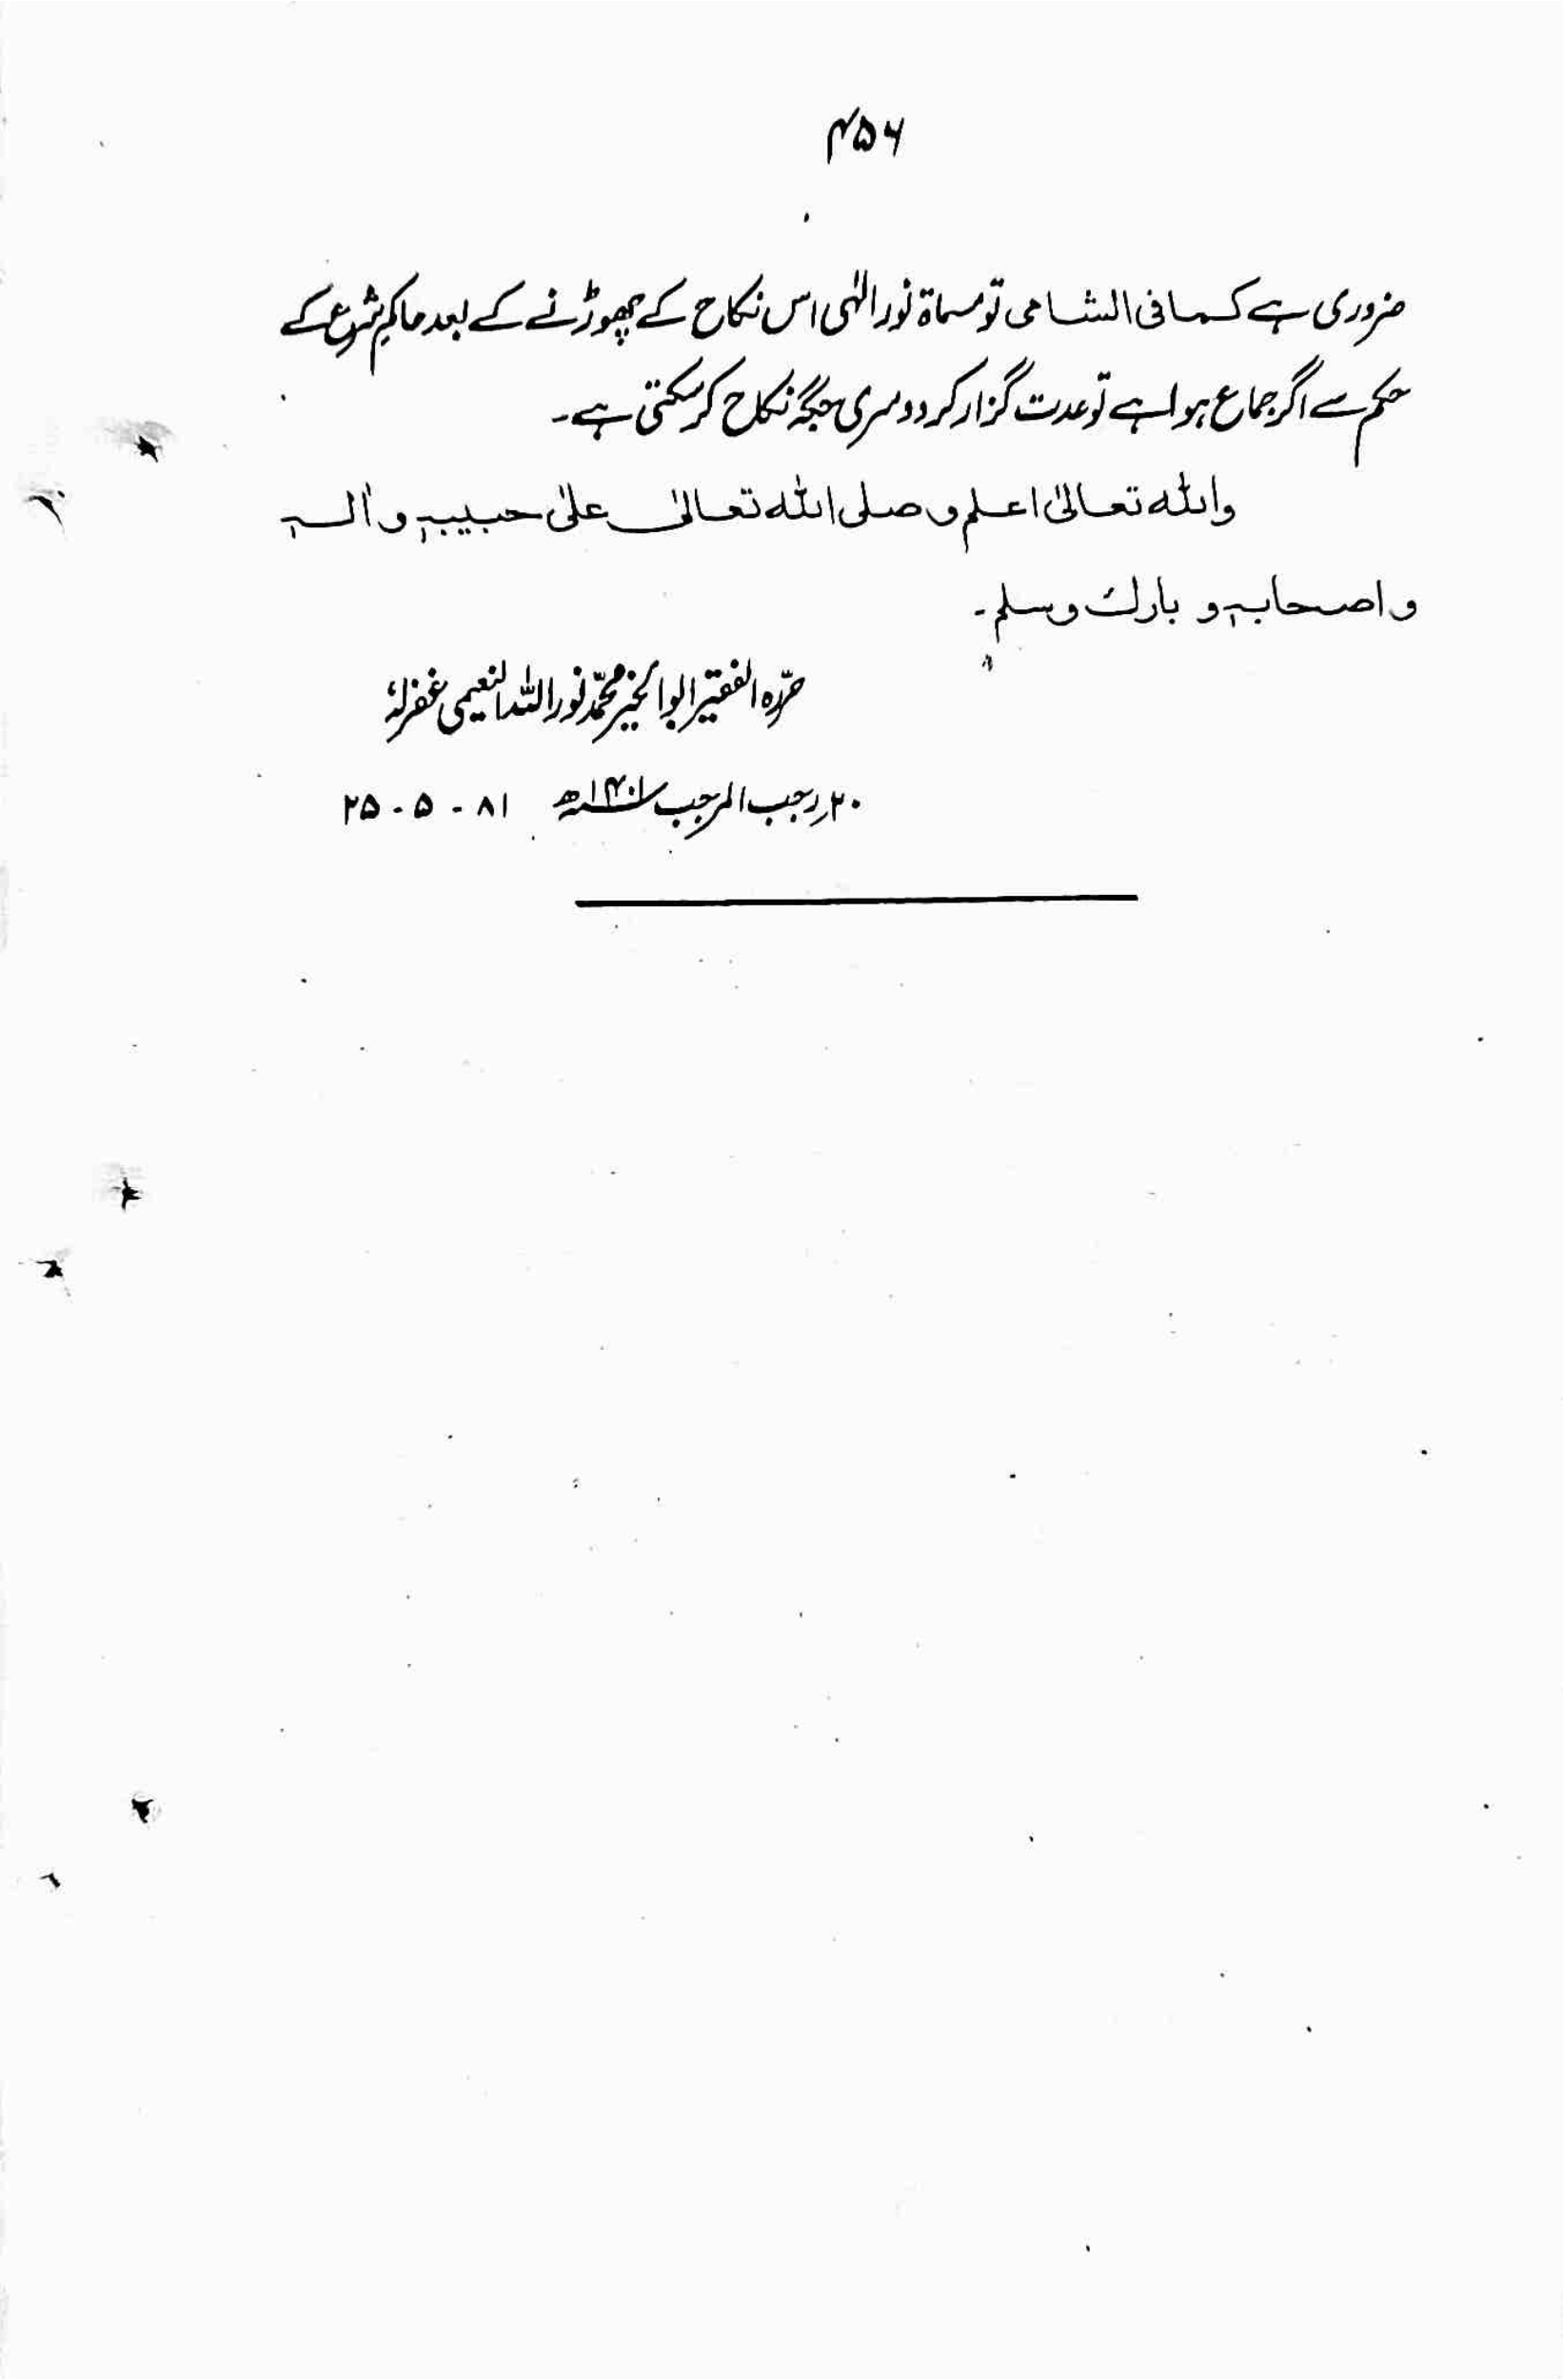 ۴۵۶
ضروری ہے کما فی الشامی تو مسماۃ نور الٰہی اس نکاح کے چھوڑنے کے بعد حاکمِ شرع کے
حکم سے اگر جماع ہوا ہے تو عدت گزار کر دوسری جگہ نکاح کر سکتی ہے۔
واللہ تعالیٰ اعلم وصلی اللہ تعالیٰ علیٰ حبیبہٖ واٰلہٖ
واصحابہٖ وبارک وسلم۔
حرّرہ الفقیر ابوالخیر محمّد نور اللہ النعیمی غفرلہٗ
۲۰؍رجب المرجب ۱۴۰۱ھ ۸۱ - ۵ - ۲۵